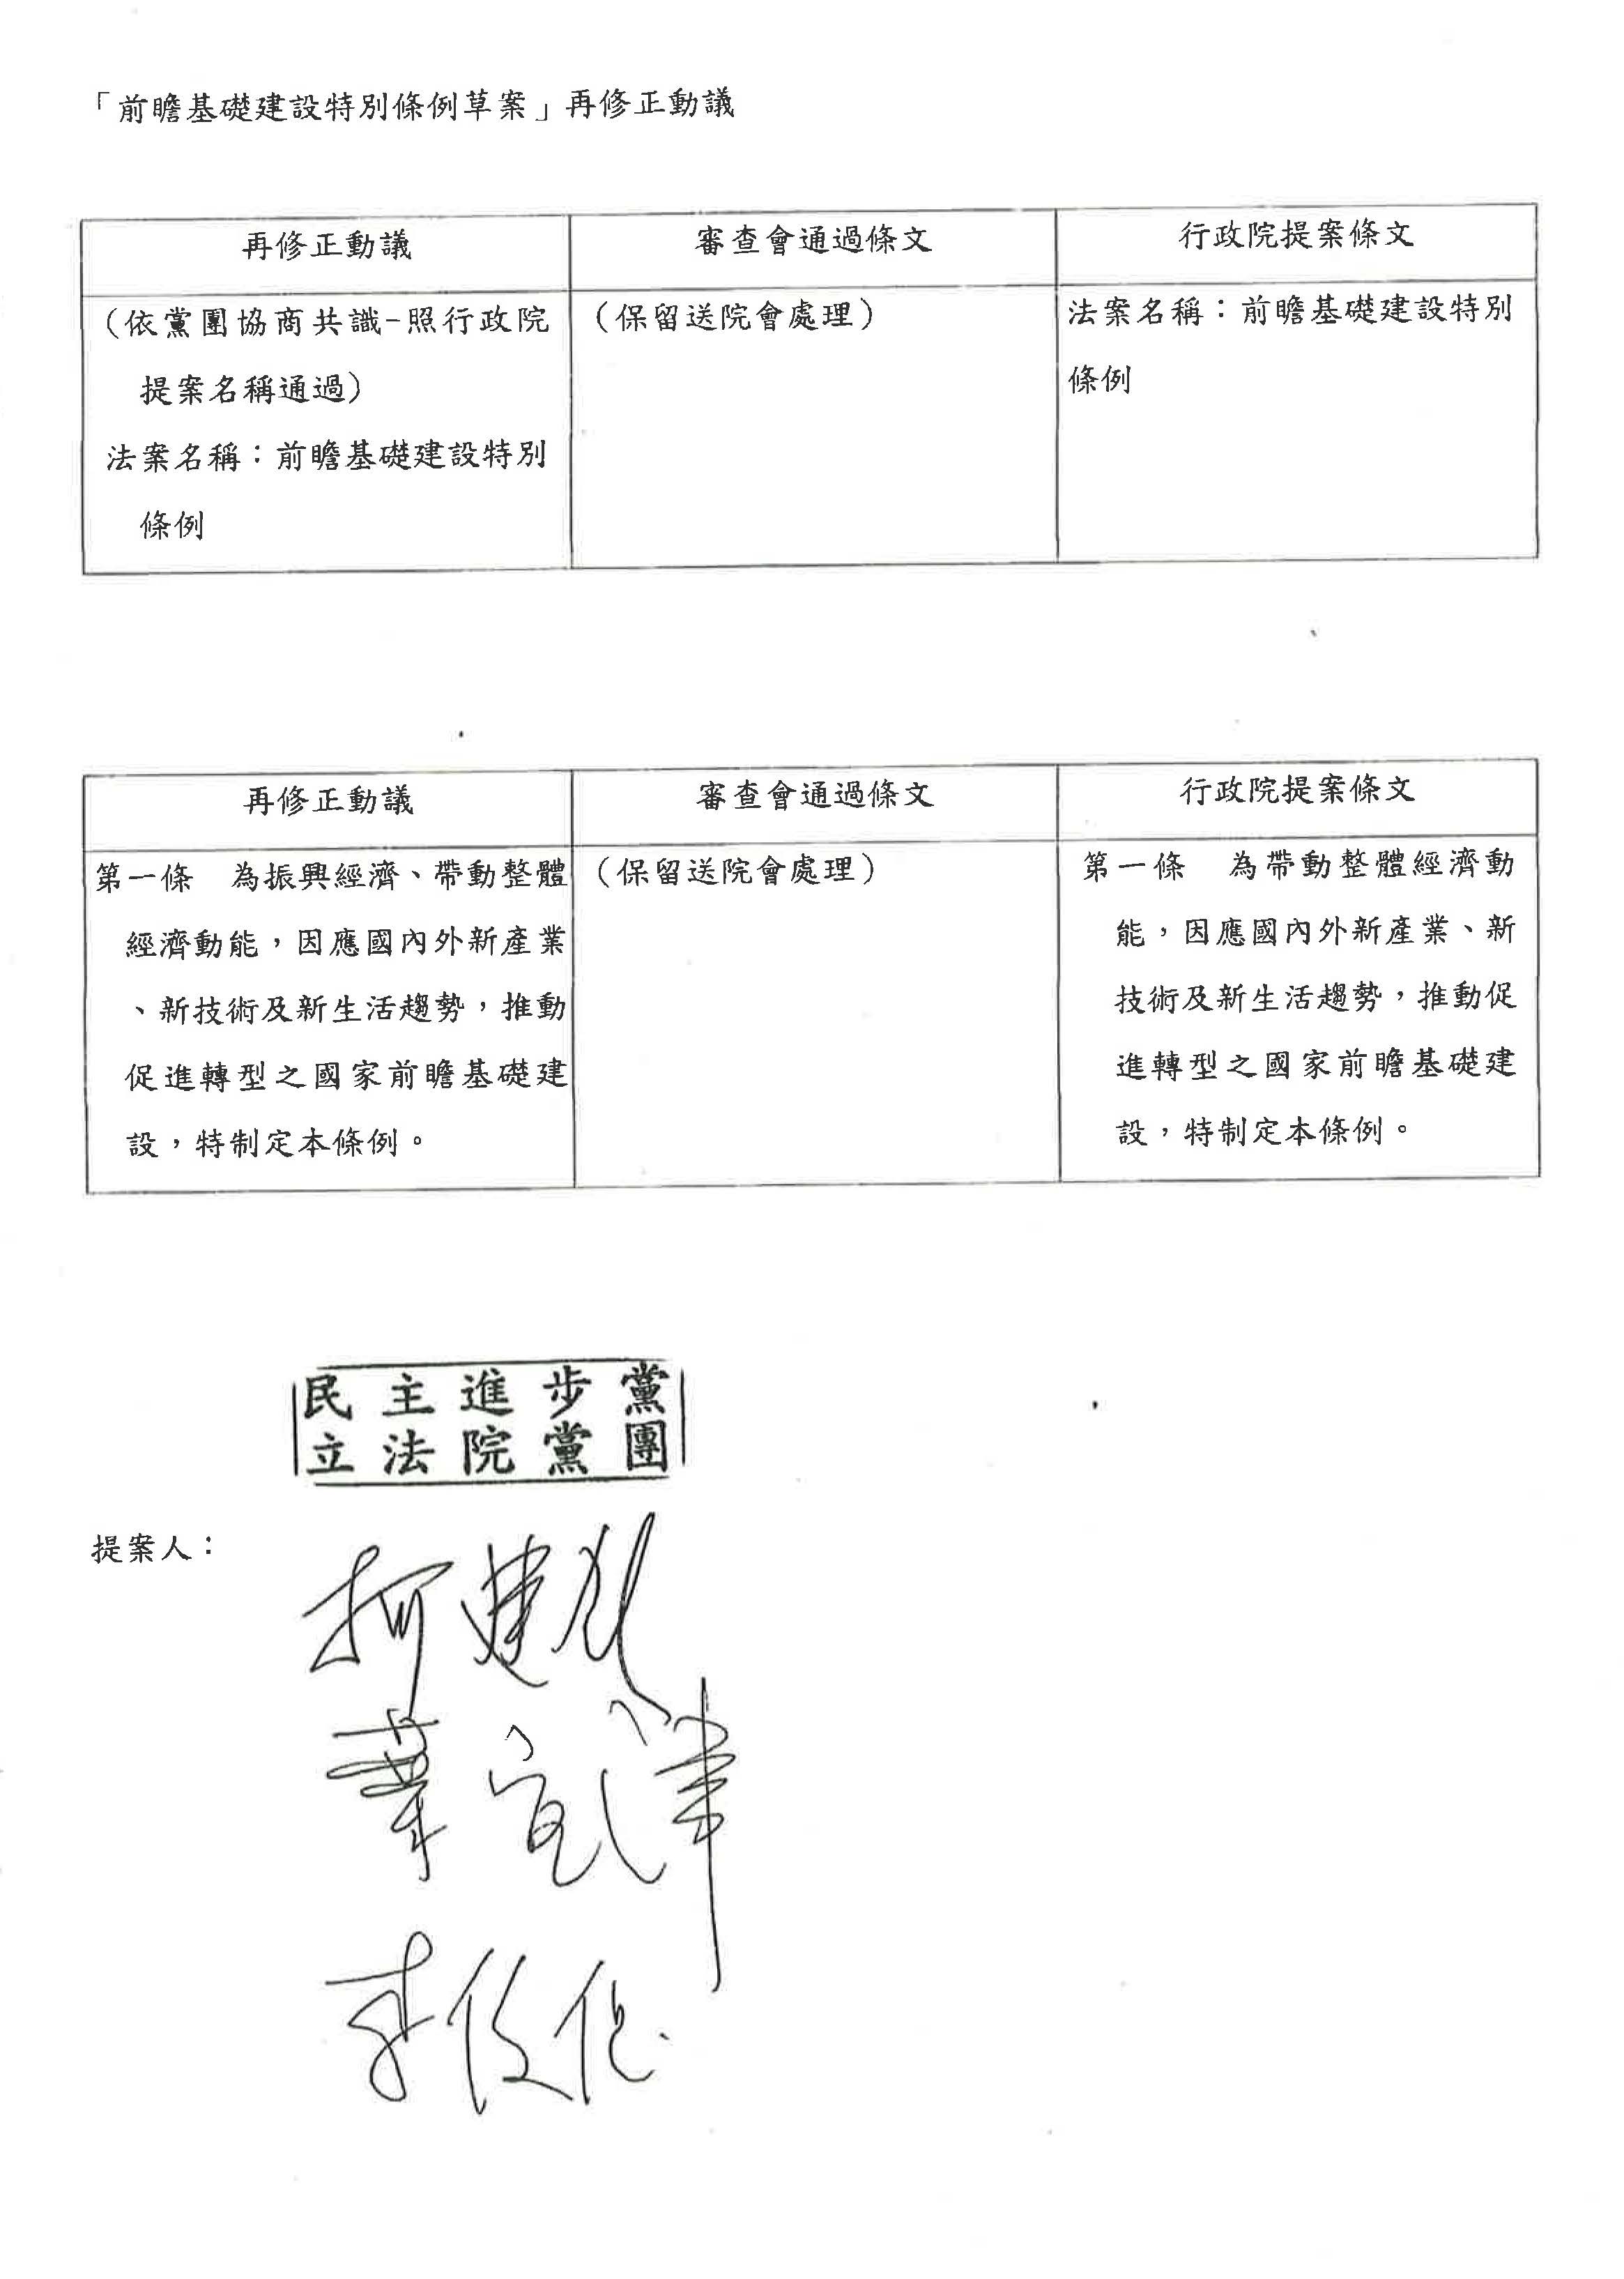 「前瞻基礎建設特別條例草案」再修正動議
再修正動議
審查會通過條文
行政院提案條文
（依黨團協商共識-照行政院
提案名稱通過）
法案名稱：前瞻基礎建設特別
條例
（保留送院會處理）
法案名稱：前瞻基礎建設特別
條例
再修正動議
審查會通過條文
行政院提案條文
第一條　為振興經濟、帶動整體
經濟動能，因應國內外新產業
、新技術及新生活趨勢，推動
促進轉型之國家前瞻基礎建
設，特制定本條例。
（保留送院會處理）
第一條　為帶動整體經濟動
能，因應國內外新產業、新
技術及新生活趨勢，推動促
進轉型之國家前瞻基礎建
設，特制定本條例。
民主進步黨
立法院黨團
提案人：
柯建銘
葉宜津
李俊俋